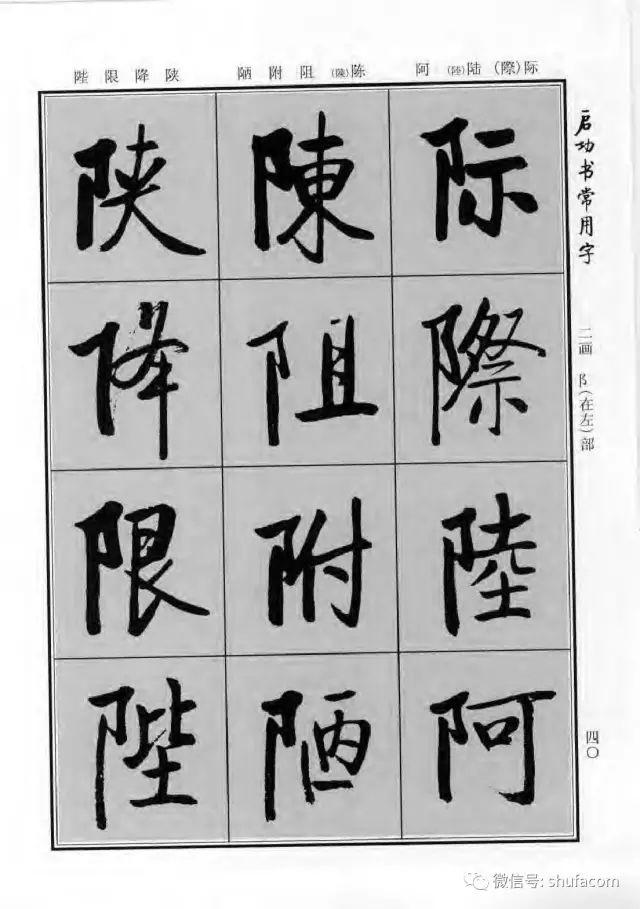 际(際) 陆(陸) 阿
陈(陳) 阻 附 陋
陕 降 限 陛
启功书常用字
二画 阝(在左)部
四〇
际
際
陸
阿
陳
阻
附
陋
陕
降
限
陛
微信号: shufacom